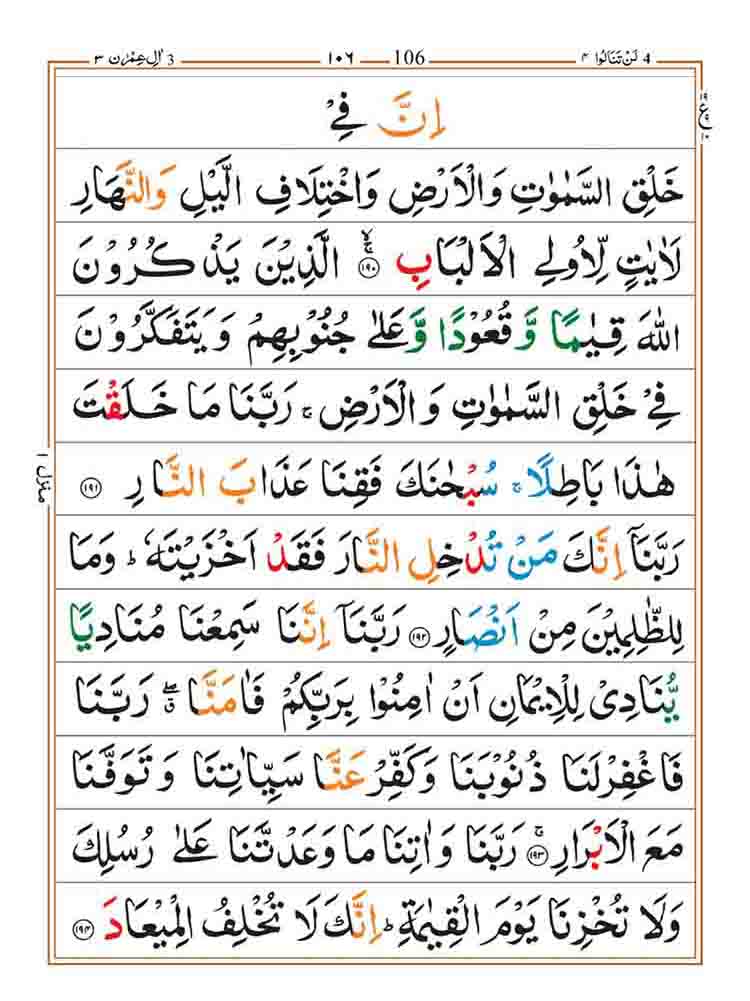 3 اٰلِ عِمْرٰن ٣ ١٠٦ 106 4 لَنْ تَنَالُوا ٤
اِنَّ فِيْ
خَلْقِ السَّمٰوٰتِ وَالْاَرْضِ وَاخْتِلَافِ الَّيْلِ وَالنَّهَارِ
لَاٰيٰتٍ لِّاُولِي الْاَلْبَابِ ۙۚ ﴿١٩٠﴾ الَّذِيْنَ يَذْكُرُوْنَ
اللّٰهَ قِيٰمًا وَّقُعُوْدًا وَّعَلٰى جُنُوْبِهِمْ وَيَتَفَكَّرُوْنَ
فِيْ خَلْقِ السَّمٰوٰتِ وَالْاَرْضِ ۚ رَبَّنَا مَا خَلَقْتَ
هٰذَا بَاطِلًا ۚ سُبْحٰنَكَ فَقِنَا عَذَابَ النَّارِ ﴿١٩١﴾
رَبَّنَآ اِنَّكَ مَنْ تُدْخِلِ النَّارَ فَقَدْ اَخْزَيْتَهٗ ؕ وَمَا
لِلظّٰلِمِيْنَ مِنْ اَنْصَارٍ ﴿١٩٢﴾ رَبَّنَآ اِنَّنَا سَمِعْنَا مُنَادِيًا
يُّنَادِيْ لِلْاِيْمَانِ اَنْ اٰمِنُوْا بِرَبِّكُمْ فَاٰمَنَّا ۖۗ رَبَّنَا
فَاغْفِرْ لَنَا ذُنُوْبَنَا وَكَفِّرْ عَنَّا سَيِّاٰتِنَا وَتَوَفَّنَا
مَعَ الْاَبْرَارِ ۚ ﴿١٩٣﴾ رَبَّنَا وَاٰتِنَا مَا وَعَدْتَّنَا عَلٰى رُسُلِكَ
وَلَا تُخْزِنَا يَوْمَ الْقِيٰمَةِ ؕ اِنَّكَ لَا تُخْلِفُ الْمِيْعَادَ ﴿١٩٤﴾
منزل ١